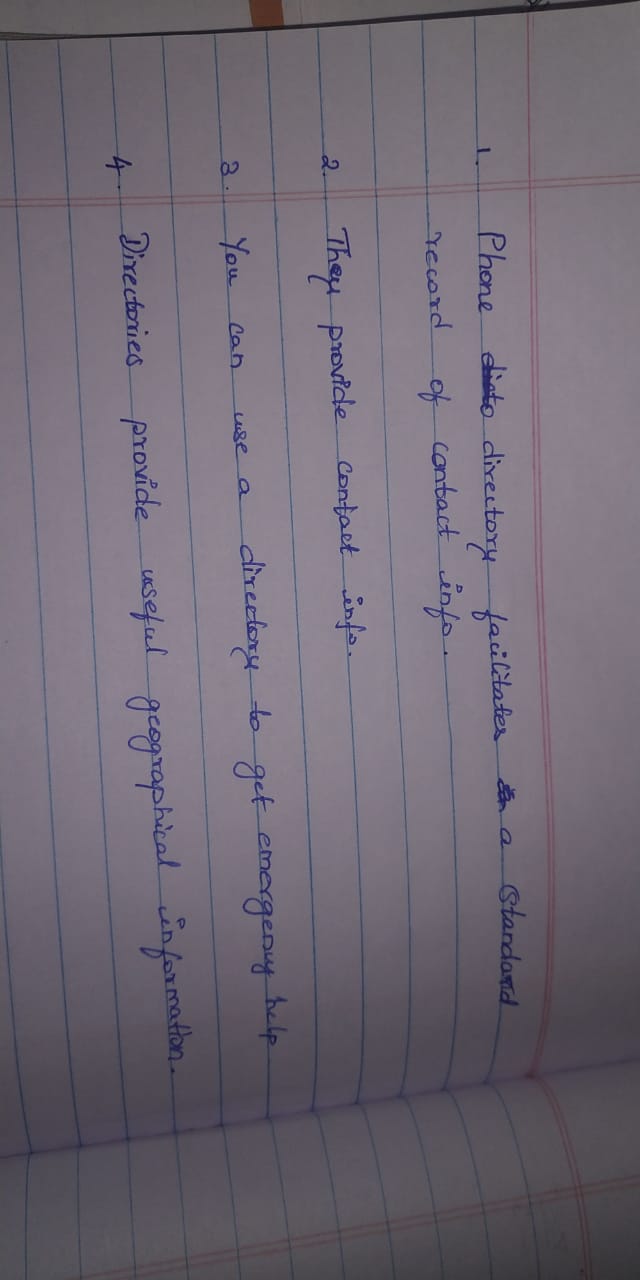 1. Phone directory facilitates a Standard
record of contact info.
2. They provide contact info.
3. You can use a directory to get emergency help
4. Directories provide useful geographical information.